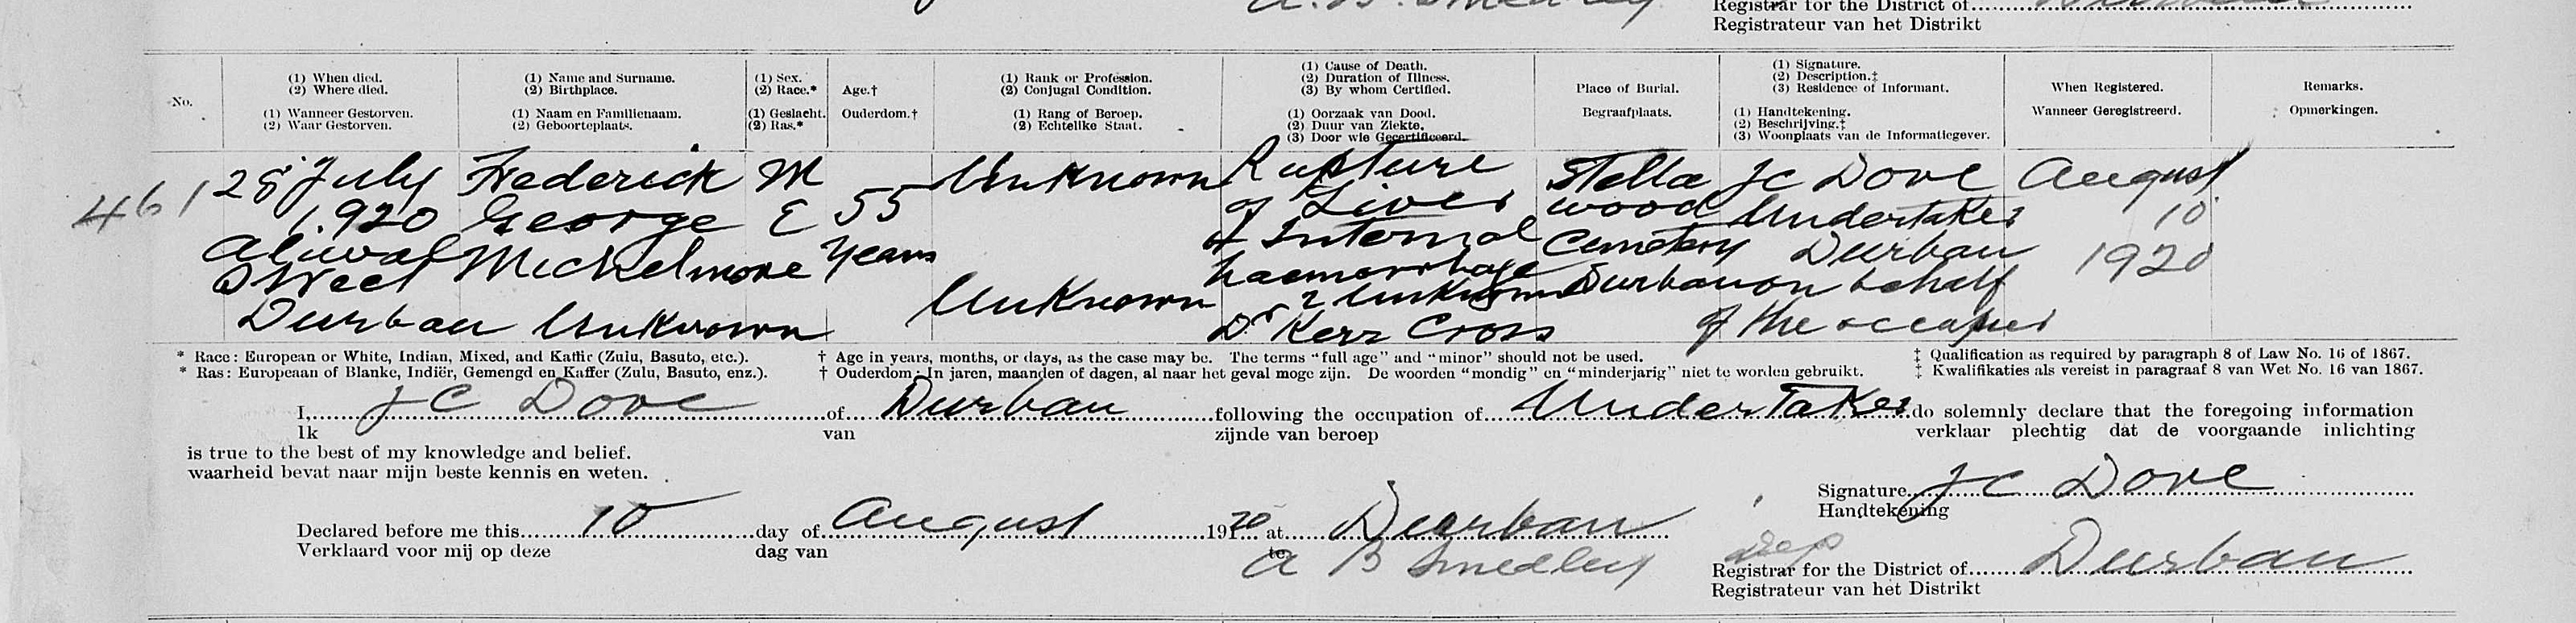 Registrar for the District of
Registrateur van het Distrikt
No.
(1) When died.
(2) Where died.
(1) Wanneer Gestorven.
(2) Waar Gestorven.
(1) Name and Surname.
(2) Birthplace.
(1) Naam en Familienaam.
(2) Geboorteplaats.
(1) Sex.
(2) Race.*
(1) Geslacht.
(2) Ras.*
Age.†
Ouderdom.†
(1) Rank or Profession.
(2) Conjugal Condition.
(1) Rang of Beroep.
(2) Echtelike Staat.
(1) Cause of Death.
(2) Duration of Illness.
(3) By whom Certified.
(1) Oorzaak van Dood.
(2) Duur van Ziekte.
(3) Door wie Gecertificeerd.
Place of Burial.
Begraafplaats.
(1) Signature.
(2) Description.‡
(3) Residence of Informant.
(1) Handtekening.
(2) Beschrijving.‡
(3) Woonplaats van de Informatiegever.
When Registered.
Wanneer Geregistreerd.
Remarks.
Opmerkingen.
461
28 July
1920
Aliwal
Street
Durban
Frederick
George
Mickelmore
Unknown
M
E
55
years
Unknown
Unknown
Rupture
of Liver
Internal
haemorrhage
2 Unknown
Dr Kerr Cross
Stella
wood
Cemetery
Durban
JC Dove
Undertaker
Durban
on behalf
of the occupier
August
10
1920
* Race: European or White, Indian, Mixed, and Kaffir (Zulu, Basuto, etc.).
* Ras: Europeaan of Blanke, Indiër, Gemengd en Kaffer (Zulu, Basuto, enz.).
† Age in years, months, or days, as the case may be. The terms "full age" and "minor" should not be used.
† Ouderdom: In jaren, maanden of dagen, al naar het geval moge zijn. De woorden "mondig" en "minderjarig" niet te worden gebruikt.
‡ Qualification as required by paragraph 8 of Law No. 16 of 1867.
‡ Kwalifikaties als vereist in paragraaf 8 van Wet No. 16 van 1867.
I, JC Dove of Durban following the occupation of Undertaker do solemnly declare that the foregoing information
Ik van zijnde van beroep verklaar plechtig dat de voorgaande inlichting
is true to the best of my knowledge and belief.
waarheid bevat naar mijn beste kennis en weten.
Signature JC Dove
Handtekening
Declared before me this 10 day of August 1920 at Durban
Verklaard voor mij op deze dag van te
A B Smedley
Dep
Registrar for the District of Durban
Registrateur van het Distrikt